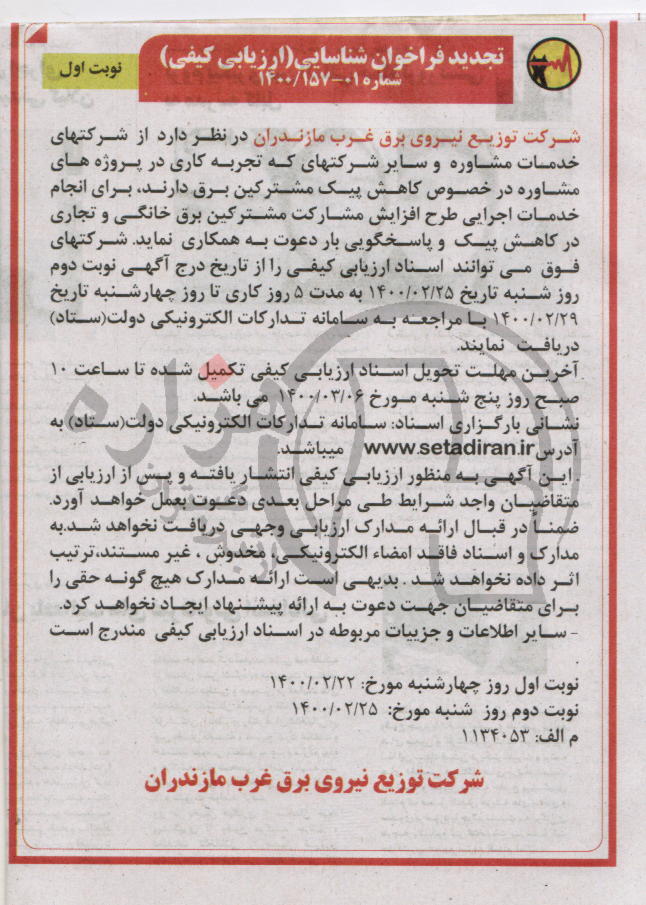 تجدید فراخوان شناسایی(ارزیابی کیفی)
شماره ۰۱-۱۴۰۰/۱۵۷
نوبت اول
شرکت توزیع نیروی برق غرب مازندران در نظر دارد از شرکتهای
خدمات مشاوره و سایر شرکتهای که تجربه کاری در پروژه های
مشاوره در خصوص کاهش پیک مشترکین برق دارند، برای انجام
خدمات اجرایی طرح افزایش مشارکت مشترکین برق خانگی و تجاری
در کاهش پیک و پاسخگویی بار دعوت به همکاری نماید. شرکتهای
فوق می توانند اسناد ارزیابی کیفی را از تاریخ درج آگهی نوبت دوم
روز شنبه تاریخ ۱۴۰۰/۰۲/۲۵ به مدت ۵ روز کاری تا روز چهارشنبه تاریخ
۱۴۰۰/۰۲/۲۹ با مراجعه به سامانه تدارکات الکترونیکی دولت(ستاد)
دریافت نمایند.
آخرین مهلت تحویل اسناد ارزیابی کیفی تکمیل شده تا ساعت ۱۰
صبح روز پنج شنبه مورخ ۱۴۰۰/۰۳/۰۶ می باشد.
نشانی بارگزاری اسناد: سامانه تدارکات الکترونیکی دولت(ستاد) به
آدرس www.setadiran.ir میباشد.
. این آگهی به منظور ارزیابی کیفی انتشار یافته و پس از ارزیابی از
متقاضیان واجد شرایط طی مراحل بعدی دعوت بعمل خواهد آورد.
ضمناً در قبال ارائه مدارک ارزیابی وجهی دریافت نخواهد شد.به
مدارک و اسناد فاقد امضاء الکترونیکی، مخدوش ، غیر مستند،ترتیب
اثر داده نخواهد شد . بدیهی است ارائه مدارک هیچ گونه حقی را
برای متقاضیان جهت دعوت به ارائه پیشنهاد ایجاد نخواهد کرد.
- سایر اطلاعات و جزییات مربوطه در اسناد ارزیابی کیفی مندرج است
.
نوبت اول روز چهارشنبه مورخ: ۱۴۰۰/۰۲/۲۲
نوبت دوم روز شنبه مورخ: ۱۴۰۰/۰۲/۲۵
م الف: ۱۱۳۴۰۵۳
شرکت توزیع نیروی برق غرب مازندران
هزاره